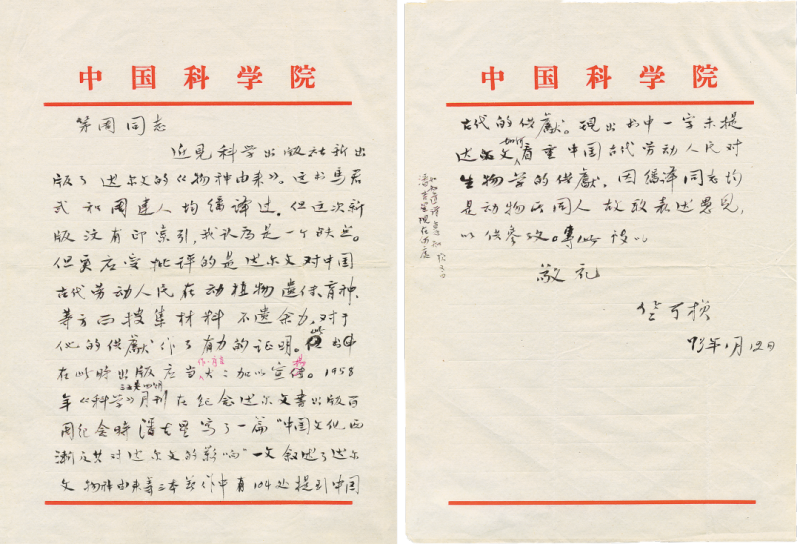 中国科学院
同志
近见科学出版社新出
版了达尔文的《物种由来》。这书马君
武和周建人均翻译过。但这次新
版没有印索引,我认为是一个缺点。
但更应受批评的是达尔文对中国
古代劳动人民在动植物遗传、育种、
等方面搜集材料不遗余力,对于
他的供献作了有力的证明。书中
在此时出版应当大々加以宣扬。1958
年《科学》月刊在纪念达尔文著出版百
周纪念时潘吉星写了一篇“中国文化西
渐及其对达尔文的影响”一文叙述了达尔
文物种由来等三本著作中有104处提到中国
中国科学院
古代的供献。现出书中一字未提
达尔文如何看重中国古代劳动人民对
生物学的供献,因编译同志均
是动物所同人故敢表述意见,
以供参考。专此 致以
敬礼
竺可桢
1月12日